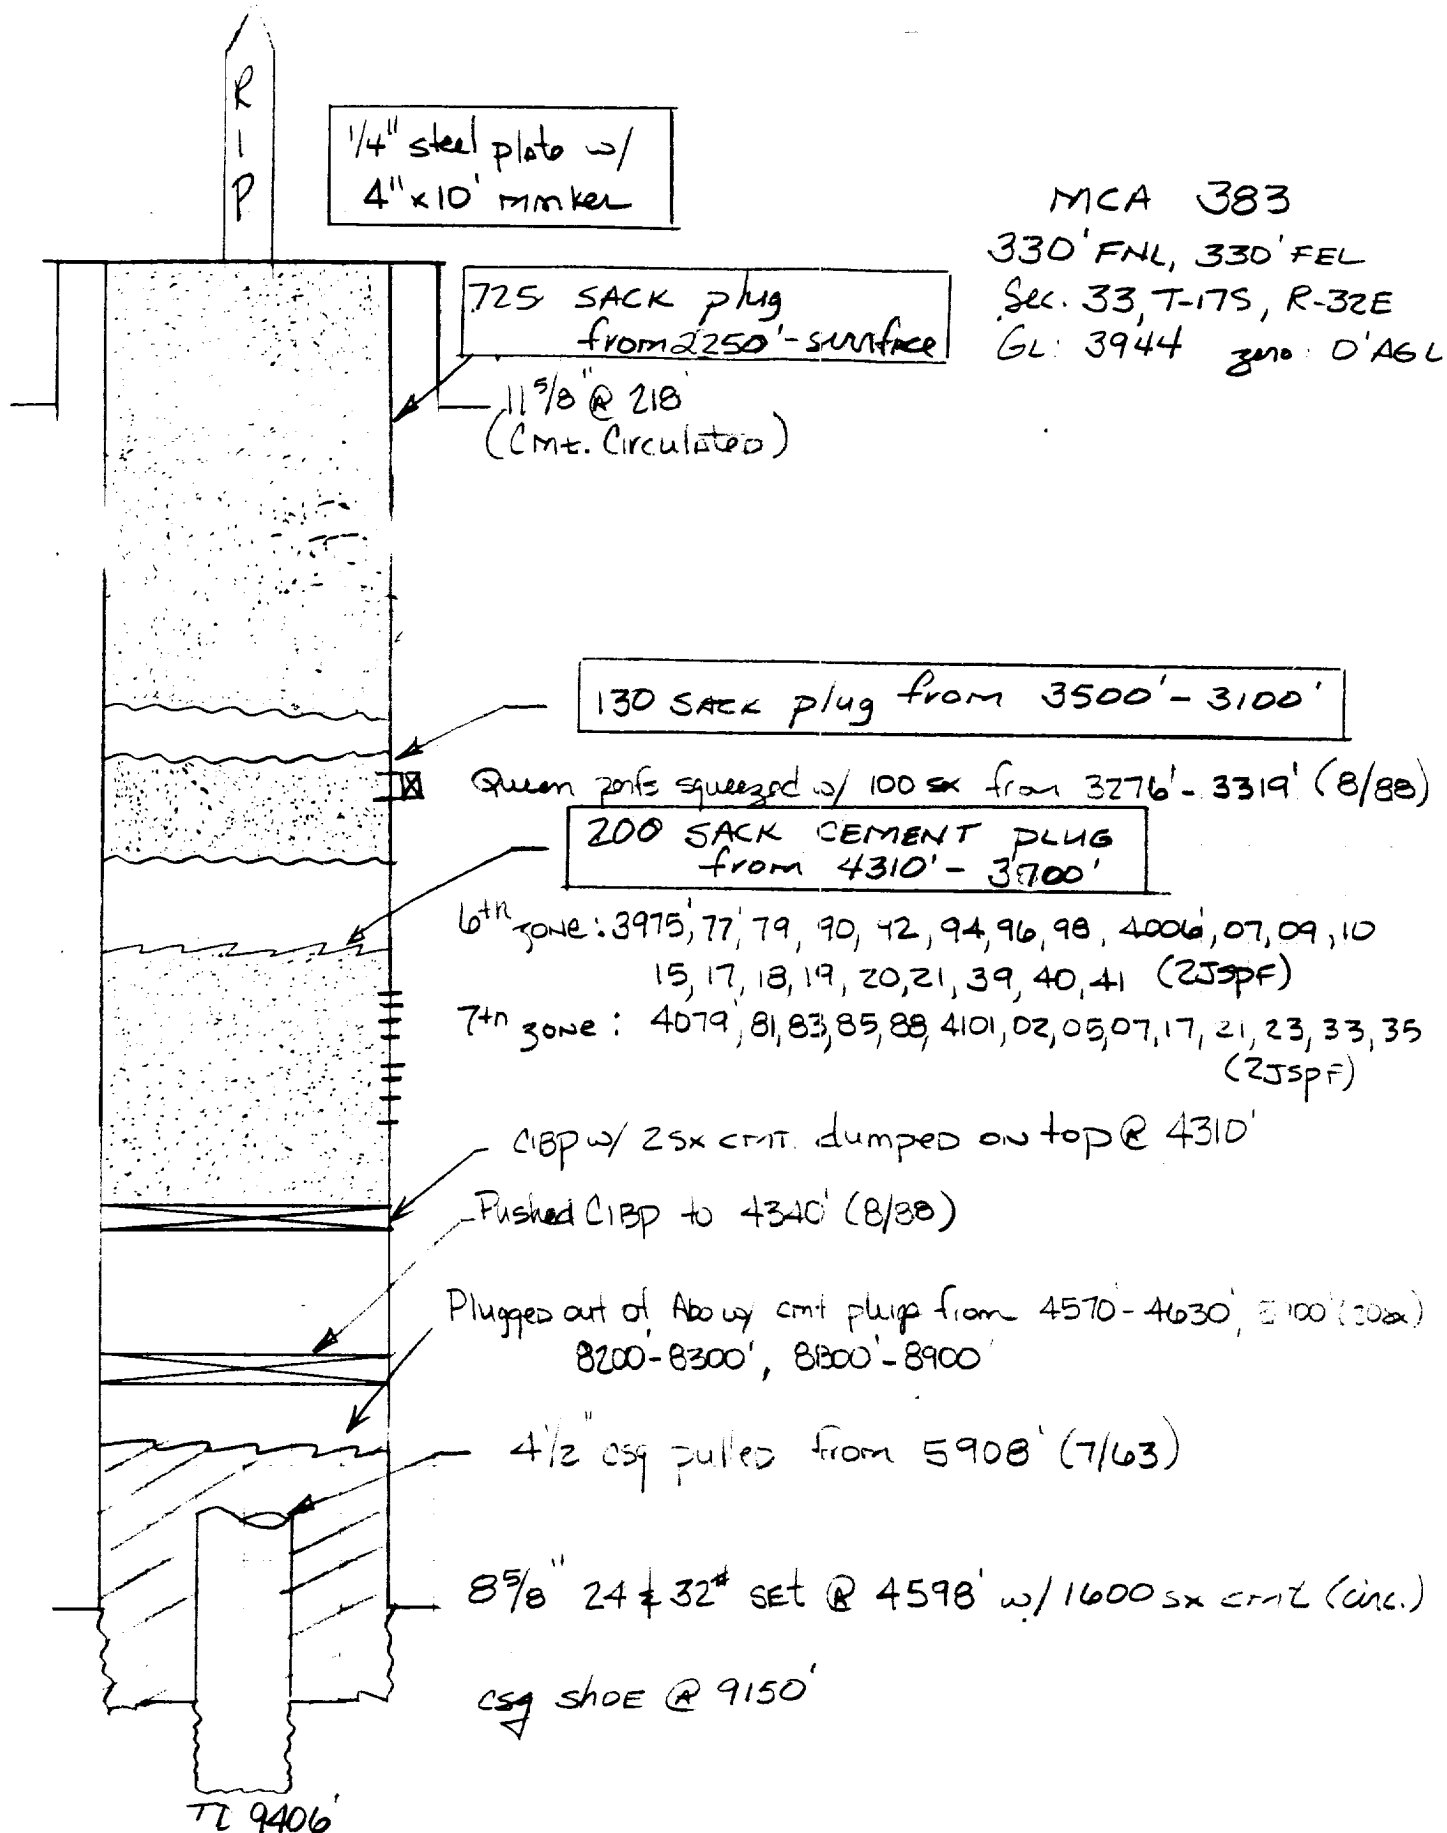 R
I
P
1/4" steel plate w/
4" x 10' marker
MCA 383
330' FNL, 330' FEL
Sec. 33, T-17S, R-32E
GL: 3944 zero: 0' AGL
725 SACK plug
from 2250'-surface
11 5/8" @ 218'
(Cmt. Circulated)
130 SACK plug from 3500'-3100'
Queen perfs squeezed w/ 100 sx from 3276'-3319' (8/88)
200 SACK CEMENT PLUG
from 4310'-3700'
6th zone: 3975', 77', 79, 90, 92, 94, 96, 98, 4006', 07, 09, 10
15, 17, 18, 19, 20, 21, 39, 40, 41 (2JSPF)
7th zone: 4079', 81, 83, 85, 88, 4101, 02, 05, 07, 17, 21, 23, 33, 35
(2JSPF)
CIBP w/ 2sx cmt. dumped on top @ 4310'
Pushed CIBP to 4340' (8/88)
Plugged out of Abo w/ cmt plugs from 4570'-4630',
8200'-8300', 8800'-8900'
4 1/2" csg pulled from 5908' (7/63)
8 5/8" 24 & 32# SET @ 4598' w/ 1600 sx cmt (circ.)
csg shoe @ 9150'
9406'